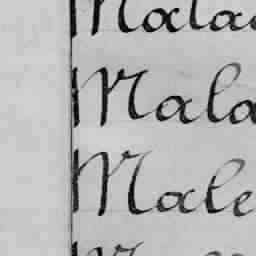 Malaa
Mala
Male